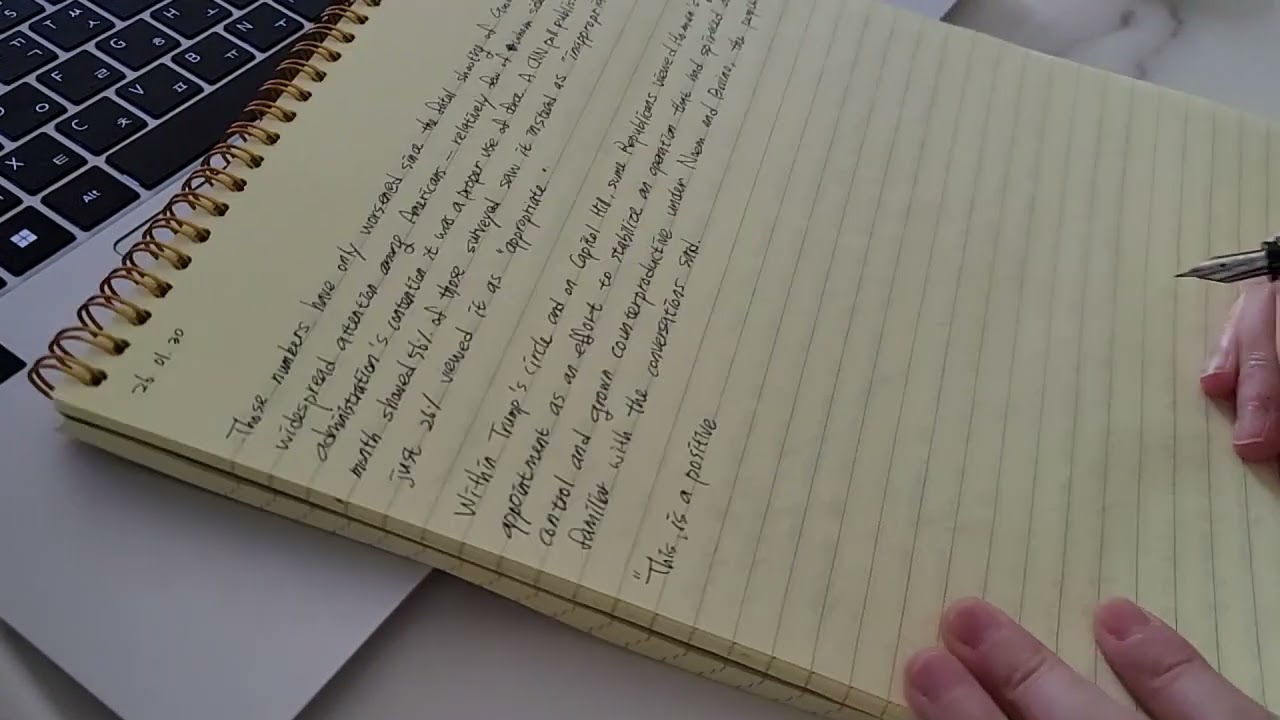 26. 01. 30
Those numbers have only worsened since the fatal shooting of
widespread attention among Americans — relatively few of whom
administration's contention it was a proper use of force. A CNN poll
month showed 56% of those surveyed saw it instead as "inappropri
just 26% viewed it as "appropriate."
Within Trump's circle and on Capitol Hill, some Republicans viewed Homan's
appointment as an effort to stabilize an operation that had spiraled
control and grown counterproductive under Noem and Bovino, the people
familiar with the conversations said.
"This is a positive
Alt
H ㅗ
G ㅎ
B ㅠ
N ㅜ
F ㄹ
V ㅍ
C ㅊ
X ㅌ